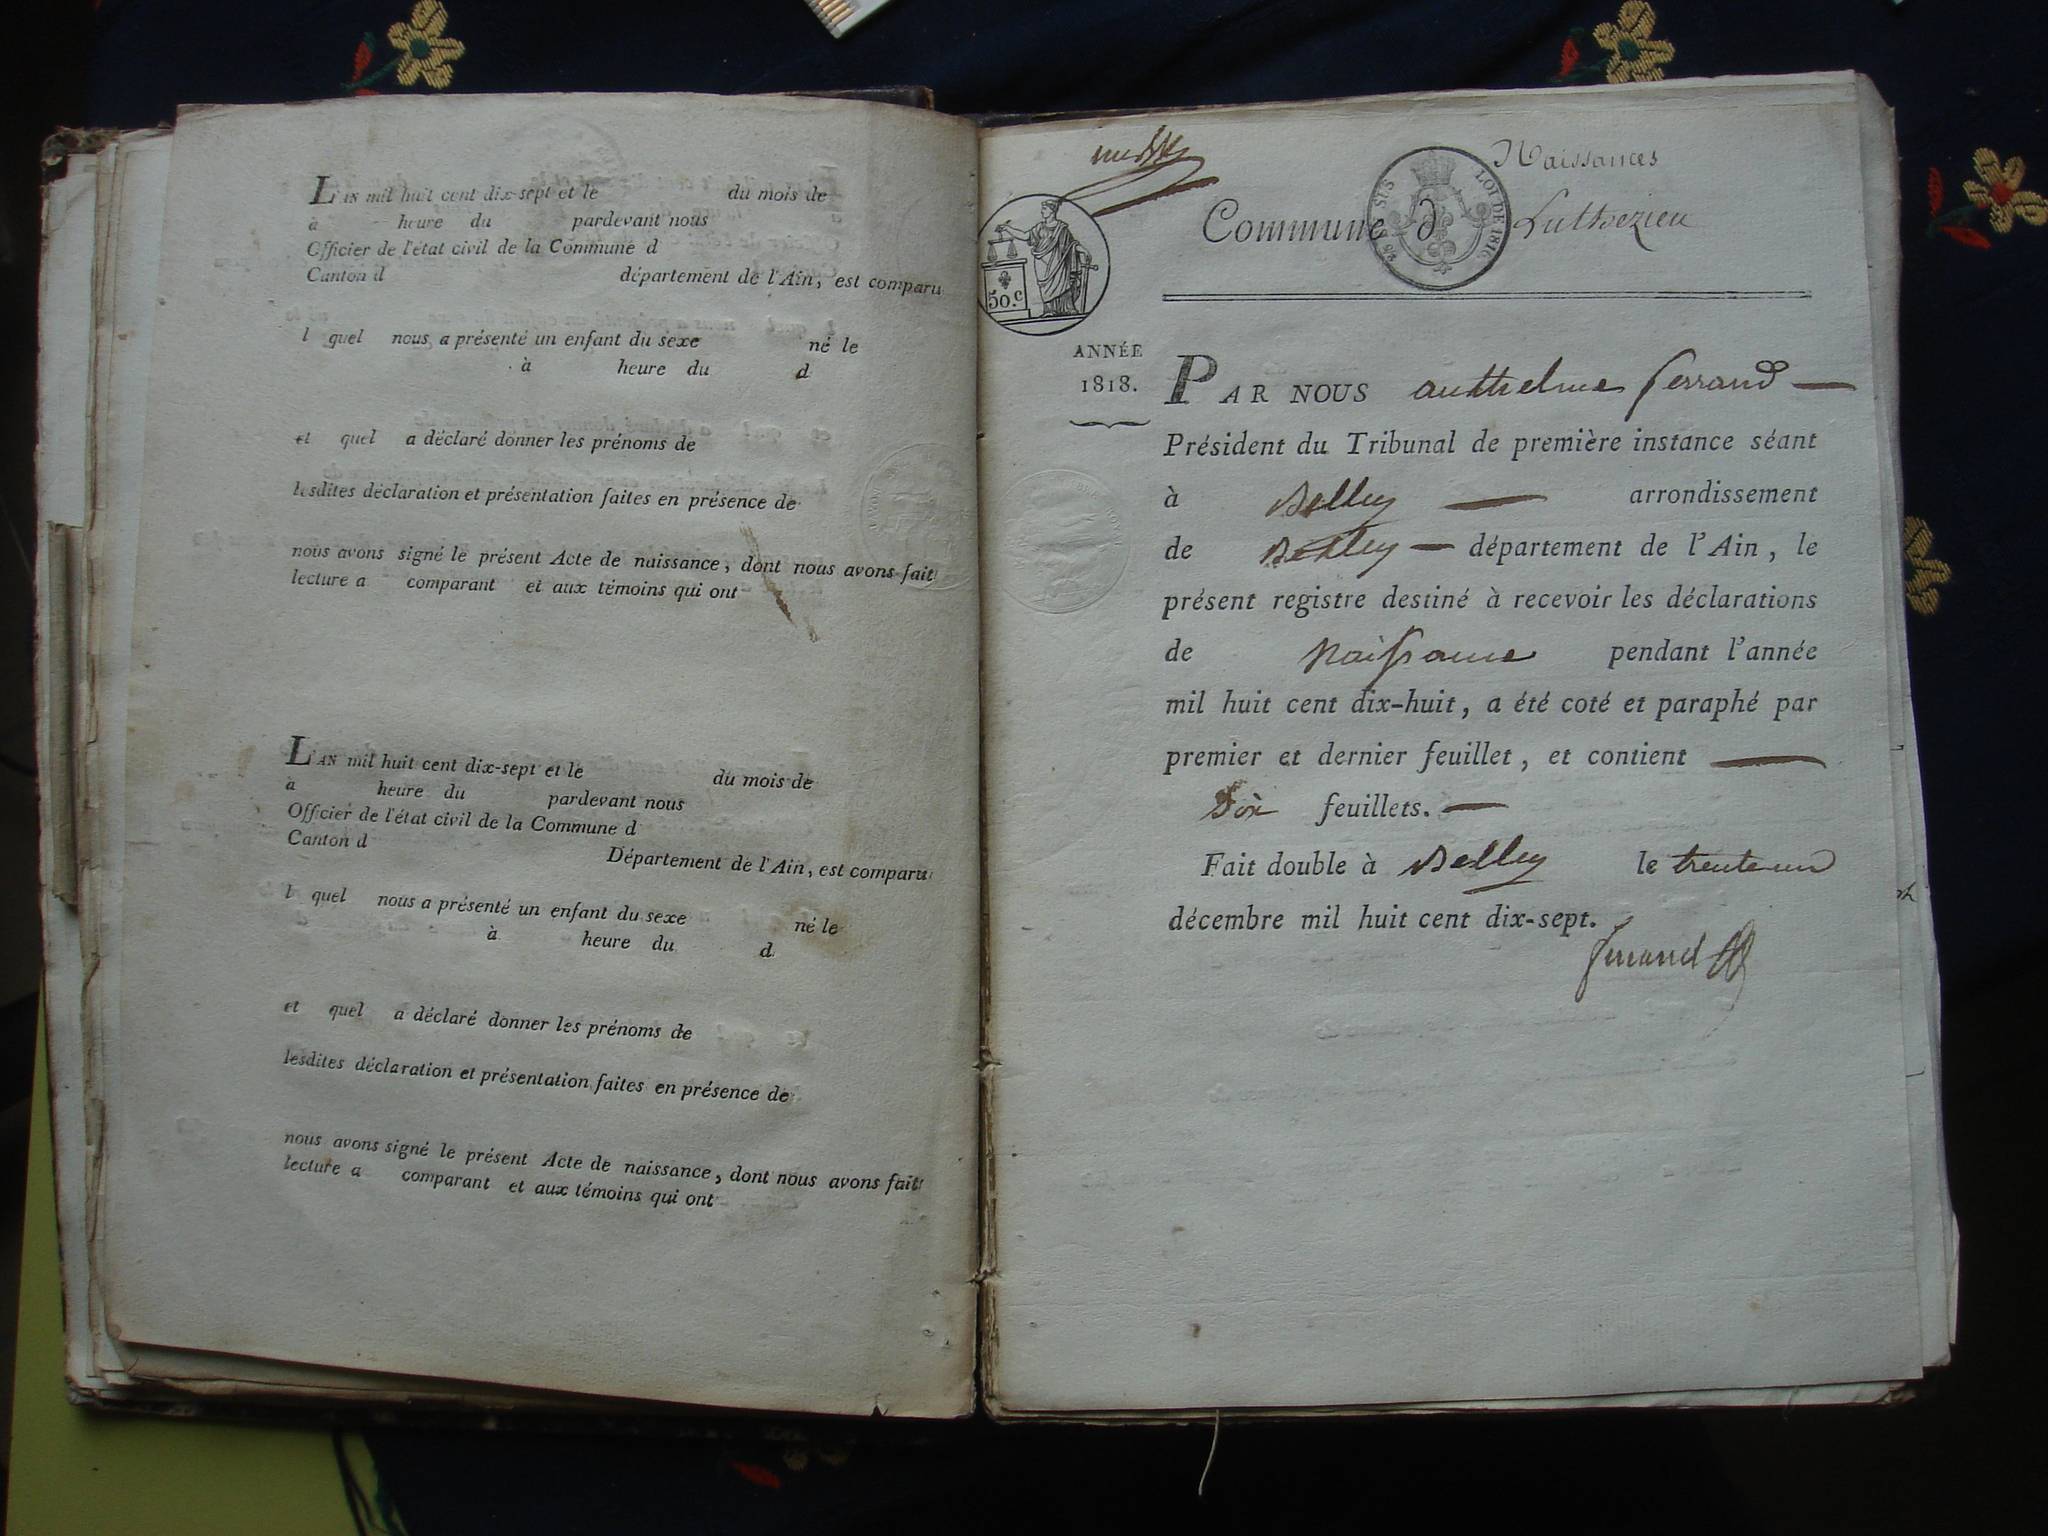 L'AN mil huit cent dix-sept et le du mois de
à heure du pardevant nous
Officier de l'état civil de la Commune d
Canton d département de l'Ain, est comparu
l quel nous a présenté un enfant du sexe né le
à heure du d
et quel a déclaré donner les prénoms de
lesdites déclaration et présentation faites en présence de
nous avons signé le présent Acte de naissance, dont nous avons fait
lecture a comparant et aux témoins qui ont
L'AN mil huit cent dix-sept et le du mois de
à heure du pardevant nous
Officier de l'état civil de la Commune d
Canton d Département de l'Ain, est comparu
l quel nous a présenté un enfant du sexe né le
à heure du d
et quel a déclaré donner les prénoms de
lesdites déclaration et présentation faites en présence de
nous avons signé le présent Acte de naissance, dont nous avons fait
lecture a comparant et aux témoins qui ont
Naissances
Commune d Luthezieu
LOI DE 1816
50.c
ANNÉE
1818.
PAR NOUS anthelme ferrand
Président du Tribunal de première instance séant
à Belley arrondissement
de Belley département de l'Ain, le
présent registre destiné à recevoir les déclarations
de Naissance pendant l'année
mil huit cent dix-huit, a été coté et paraphé par
premier et dernier feuillet, et contient
Six feuillets.
Fait double à Belley le trente un
décembre mil huit cent dix-sept.
ferrand